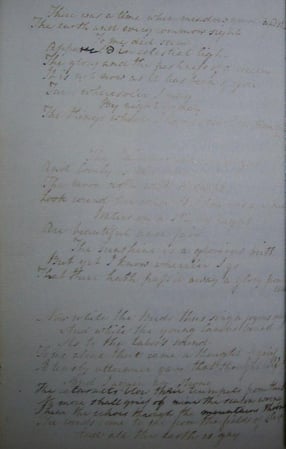 There was a time when meadow grove and
The earth and every common sight
To me did seem
Apparel'd in celestial light
The glory and the freshness of a dream
It is not now as it has been of yore
Turn wheresoe'er I may
By night or day
The things which I have seen I
The
And lovely is the
The moon doth with delight
Look round her when the
Waters on a starry night
Are beautiful and fair
The sunshine is a glorious birth
But yet I know where'er I go
That there hath pass'd away a glory from
Now while the Birds thus sing a joyous song
And while the young lambs bound
As to the tabor's sound
To me alone there came a thought of grief
A timely utterance gave that thought relief
And I again am strong
The cataracts blow their trumpets from the steep
No more shall grief of mine the season wrong
I hear the echoes through the mountains throng
The winds come to me from the fields of sleep
And all the earth is gay